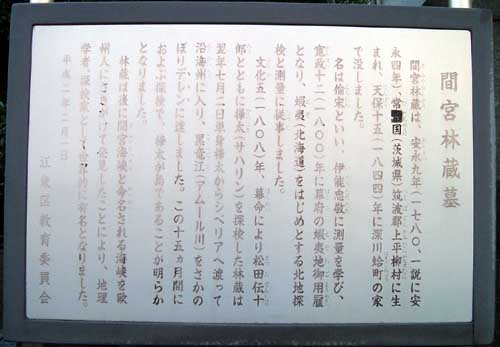 間宮林蔵墓
間宮林蔵は、安永九年(一七八〇、一説に安
永四年)、常国(茨城県)筑波郡上平柳村に生
まれ、天保十五(一八四四)年に深川蛤町の家
で没しました。
名は倫宗といい、伊能忠敬に測量を学び、
寛政十二(一八〇〇)年に幕府の蝦夷地御用雇
となり、蝦夷(北海道)をはじめとする北地探
検と測量に従事しました。
文化五(一八〇八)年、幕命により松田伝十
郎とともに樺太(サハリン)を探検した林蔵は
翌年七月二日単身樺太からシベリアへ渡って
沿海州に入り、黒竜江(アムール川)をさかの
ぼりデレンに達しました。この十五ヵ月間に
およぶ探検で、樺太が島であることが明らか
となりました。
林蔵は後に間宮海峡と命名される海峡を欧
州人にさきがけて発見したことにより、地理
学者、探検家として世界的に有名となりました。
平成二年二月一日
江東区教育委員会